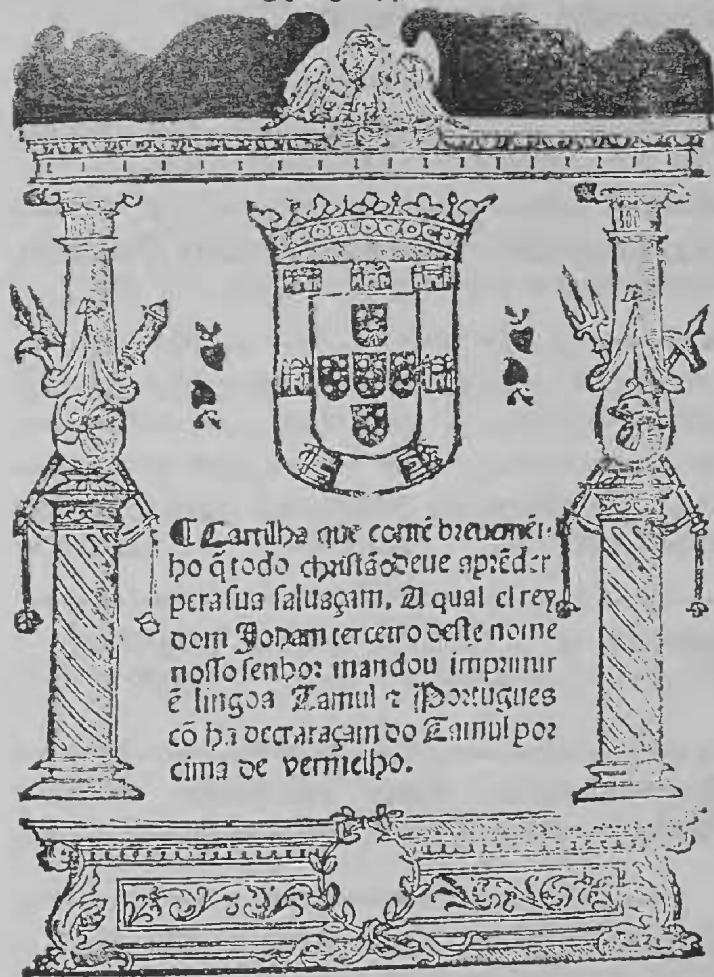 ¶ Cartilha que contẽ breuemẽt
ho q̃ todo christão deue aprẽder
pera sua saluaçam. A qual el rey
dom Joham terceiro deste nome
nosso senhor mandou imprimir
ẽ lingoa Tamul ⁊ Portugues
cõ ha decraraçam do Tamul por
cima de vermelho.